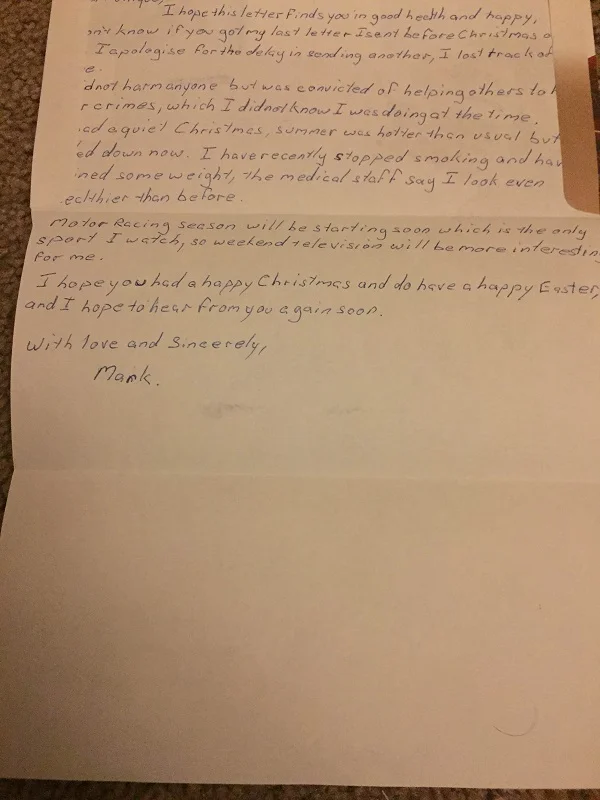 I hope this letter finds you in good health and happy,
know if you got my last letter I sent before Christmas
I apologise for the delay in sending another, I lost track of
e.
dnot harm anyone but was convicted of helping others to
r crimes, which I did not know I was doing at the time.
ad a quiet Christmas, summer was hotter than usual but
ed down now. I have recently stopped smoking and hav
ined some weight, the medical staff say I look even
ealthier than before.
Motor Racing season will be starting soon which is the only
sport I watch, so weekend television will be more interesting
for me.
I hope you had a happy Christmas and do have a happy Easter,
and I hope to hear from you again soon.
With love and Sincerely,
Mark.